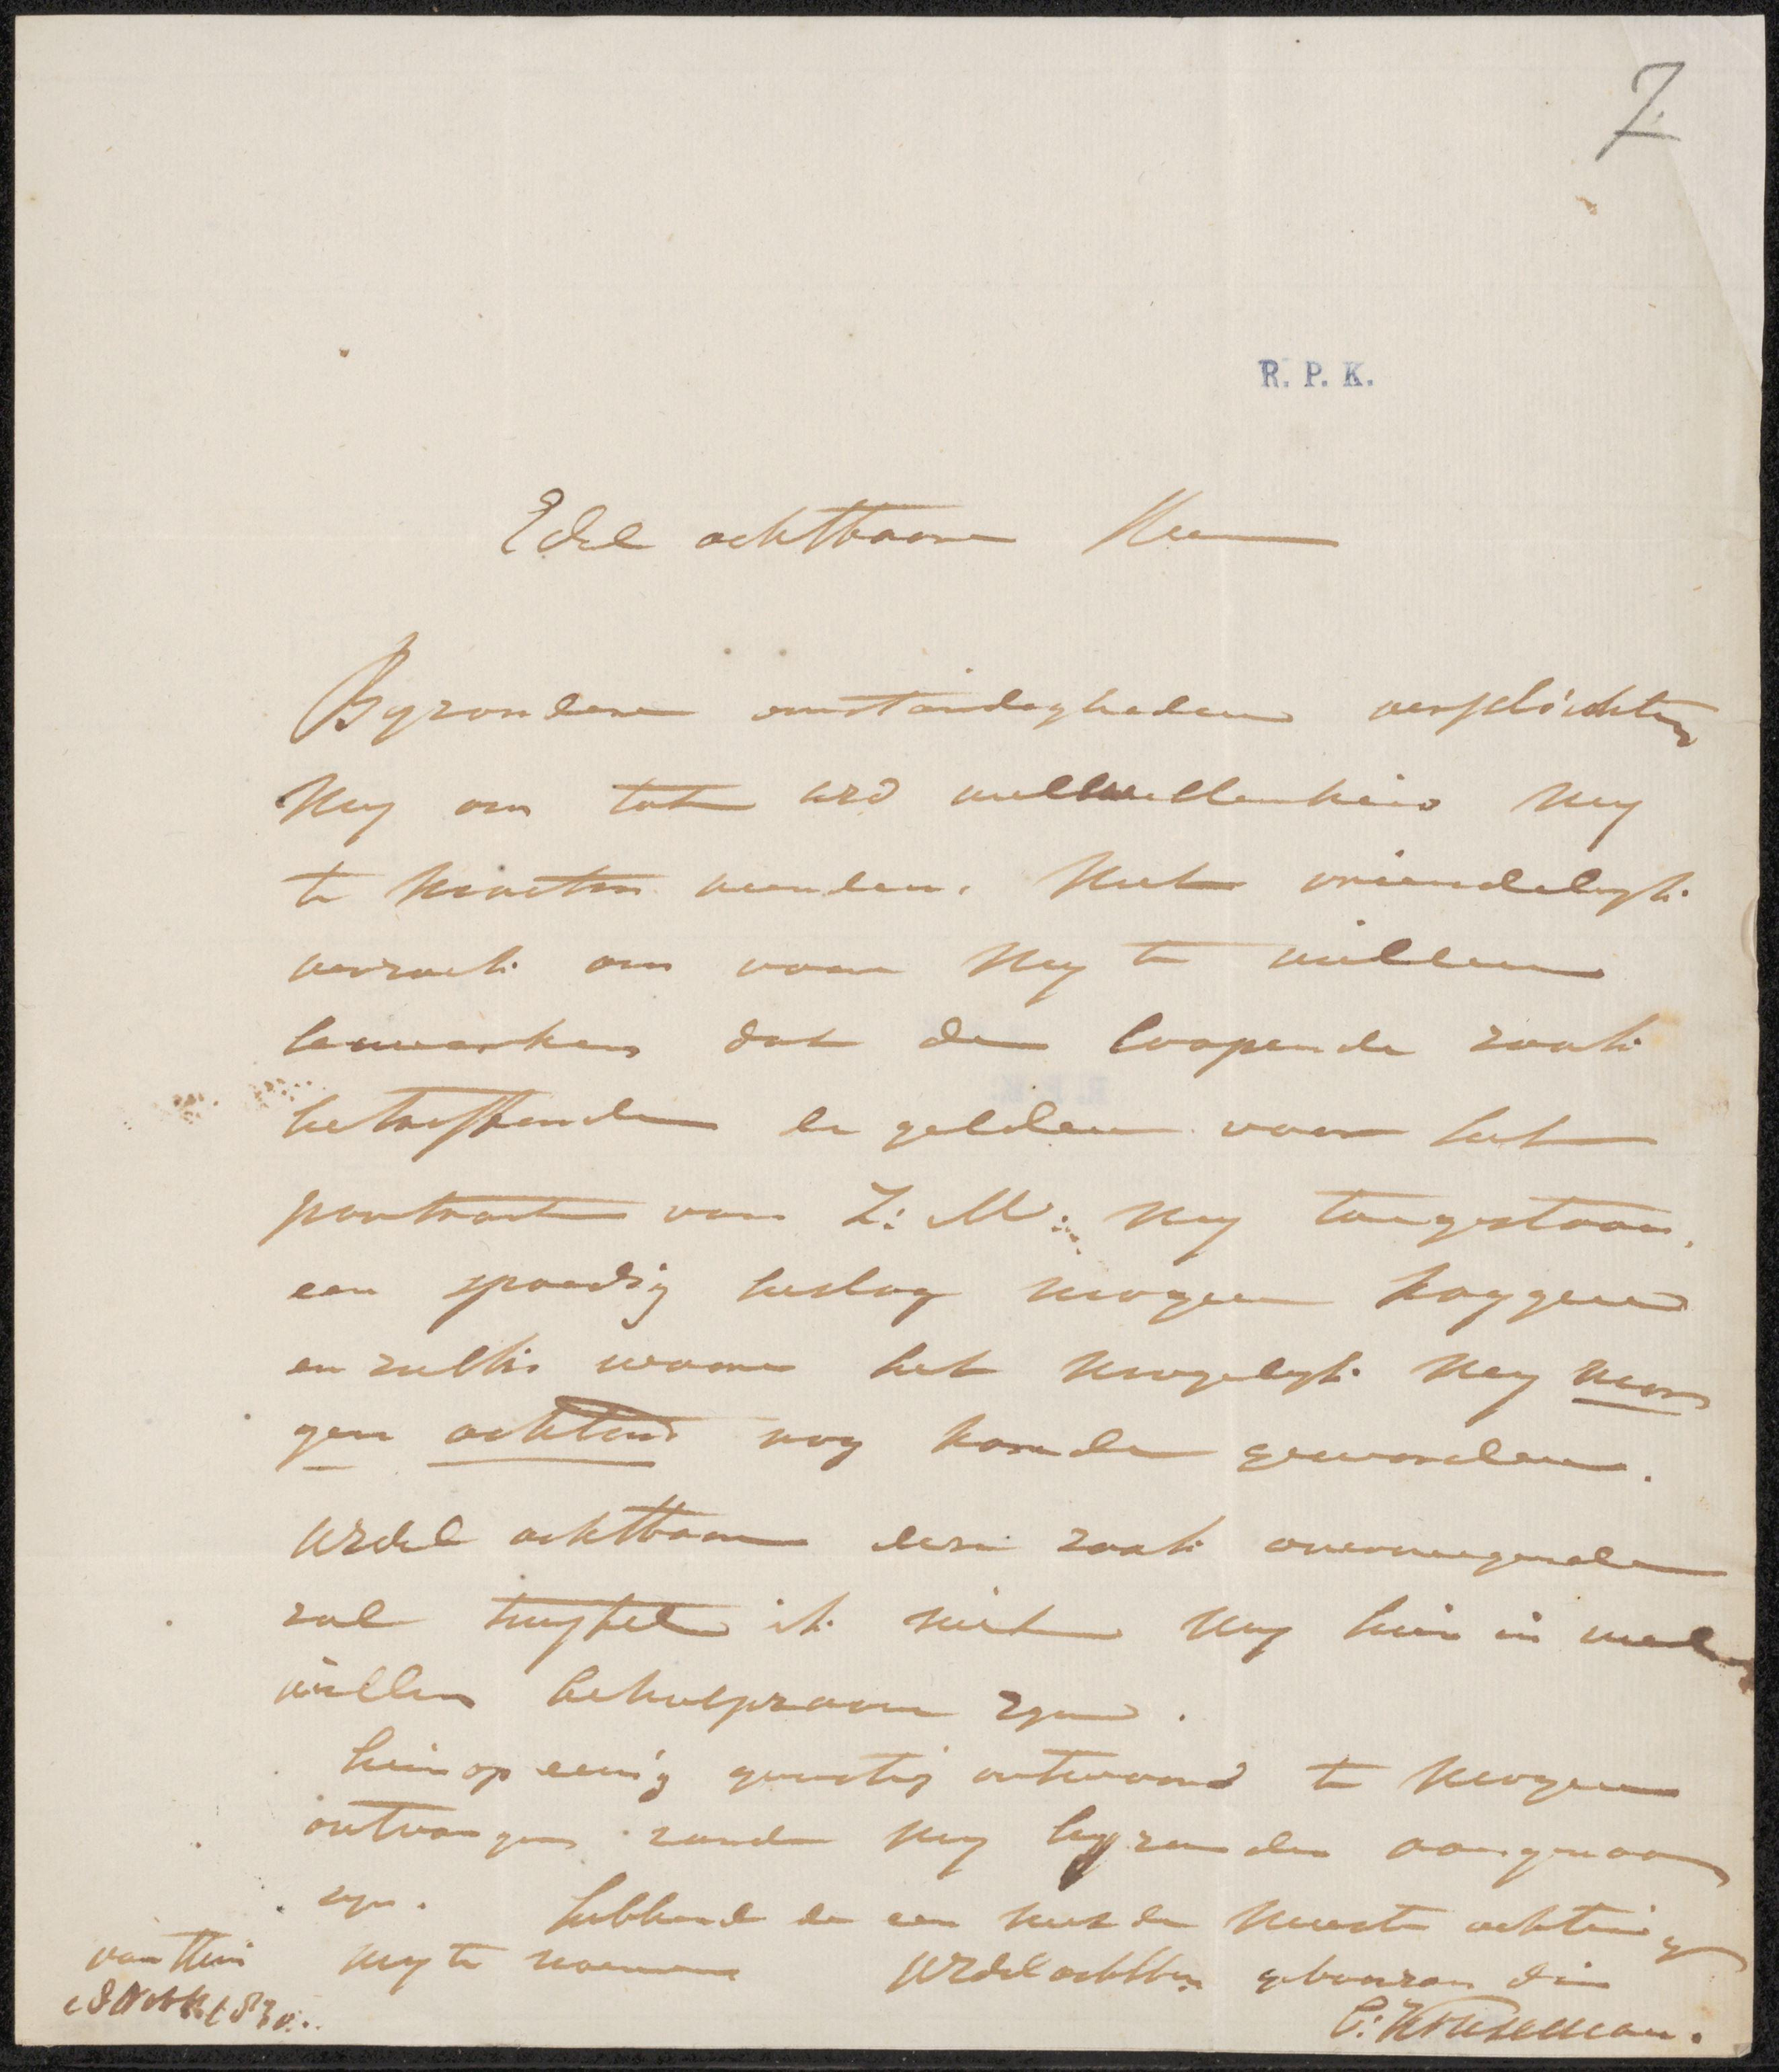 7.
R. P. K.
Edel achtbaare Heer
Byzondere omstandigheden verplichten
my om tot uEd welwillenheid my
te moeten wenden. Met vriendelyk
verzoek om voor my te willen
bewerken dat de loopende zaak
betreffende de gelden voor het
portrait van Z: M: my toegestaan.
een spoedig beslag mogen krygen
en zulks waare het mogelyk my mor
gen achtend nog konde geworden.
uEdel achtbaare deze zaak overwegende
zal twyfel ik niet my hier in wel
willen behulpzaam zyn.
hier op eenig gunstig antwoord te mogen
ontvangen zoude my byzonder aangenaam
zyn. hebbende de eer met de meeste achting
my te noemen uEdel achtb: gehoorzam din
van Huis
18
C: Kruseman.